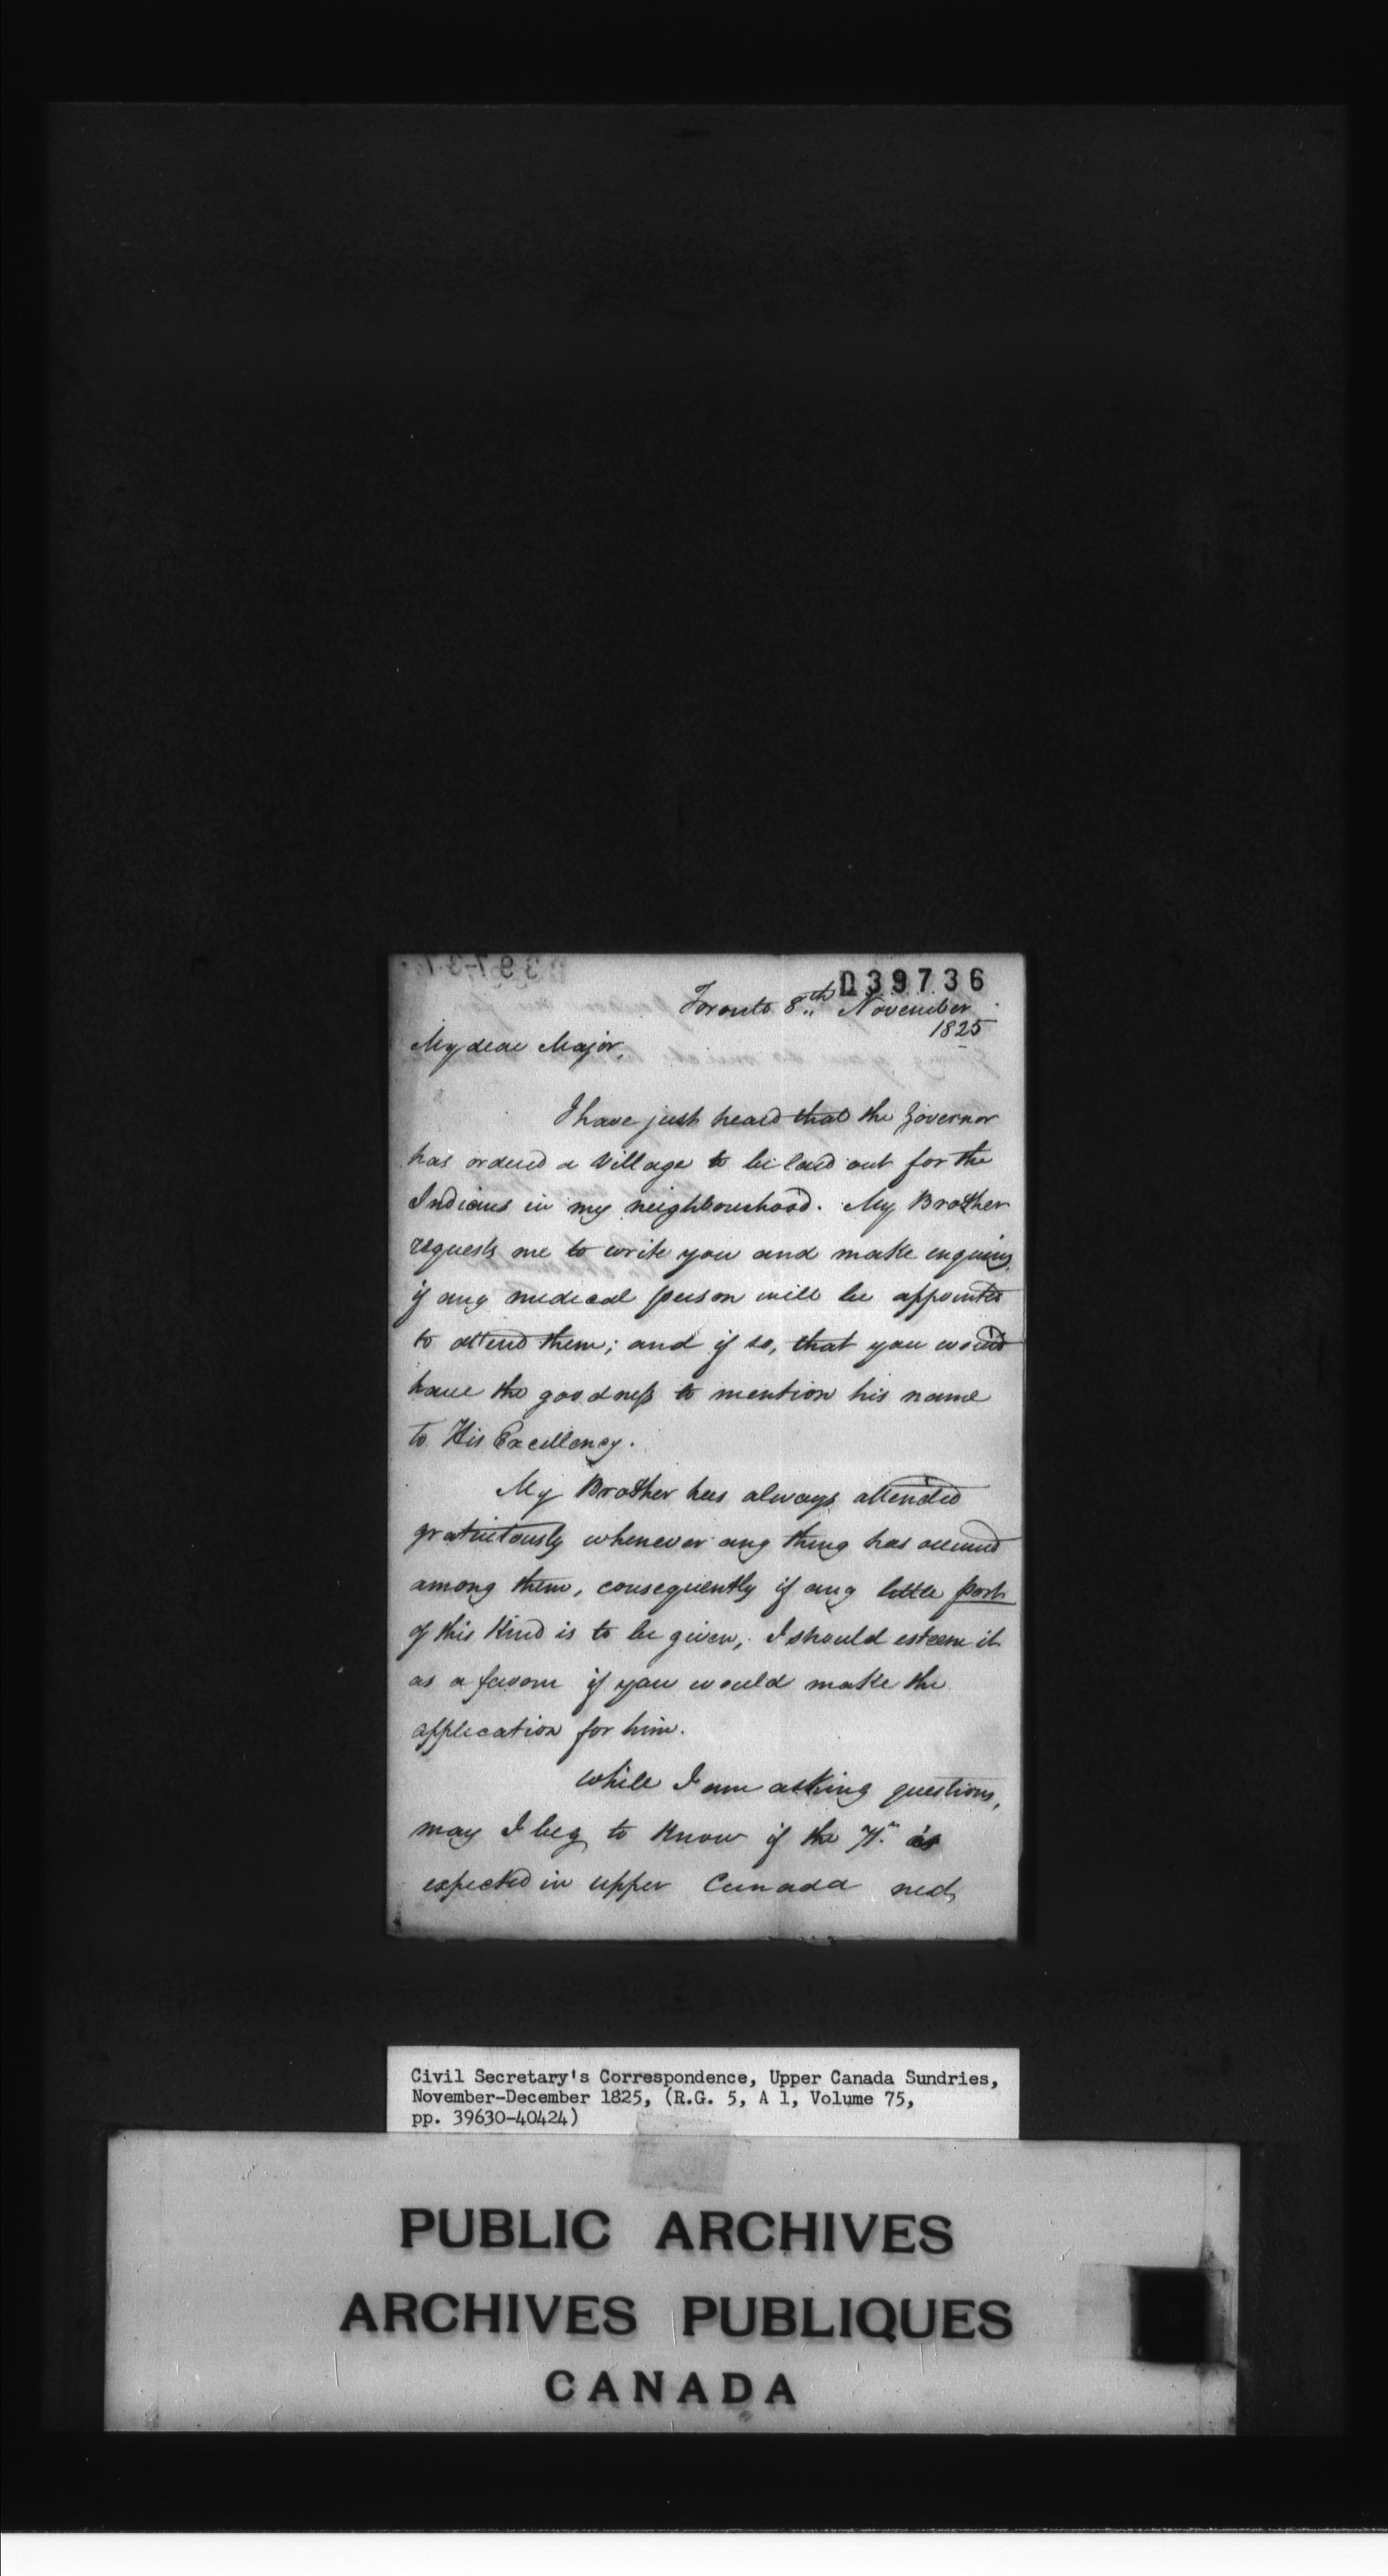 D39736
Toronto 8th November
1825
My dear Major,
I have just heard that the Governor
has ordered a Village to be laid out for the
Indians in my neighbourhood. My Brother
requests me to write you and make enquiry
if any medical person will be appointed
to attend them; and if so, that you would
have the goodness to mention his name
to His Excellency.
My Brother has always attended
gratuitously whenever any thing has occurred
among them, consequently if any little post
of this Kind is to be given, I should esteem it
as a favour if you would make the
application for him.
While I am asking questions,
may I beg to Know if the is
expected in upper Canada next
Civil Secretary's Correspondence, Upper Canada Sundries,
November-December 1825, (R.G. 5, A 1, Volume 75,
pp. 39630-40424)
PUBLIC ARCHIVES
ARCHIVES PUBLIQUES
CANADA